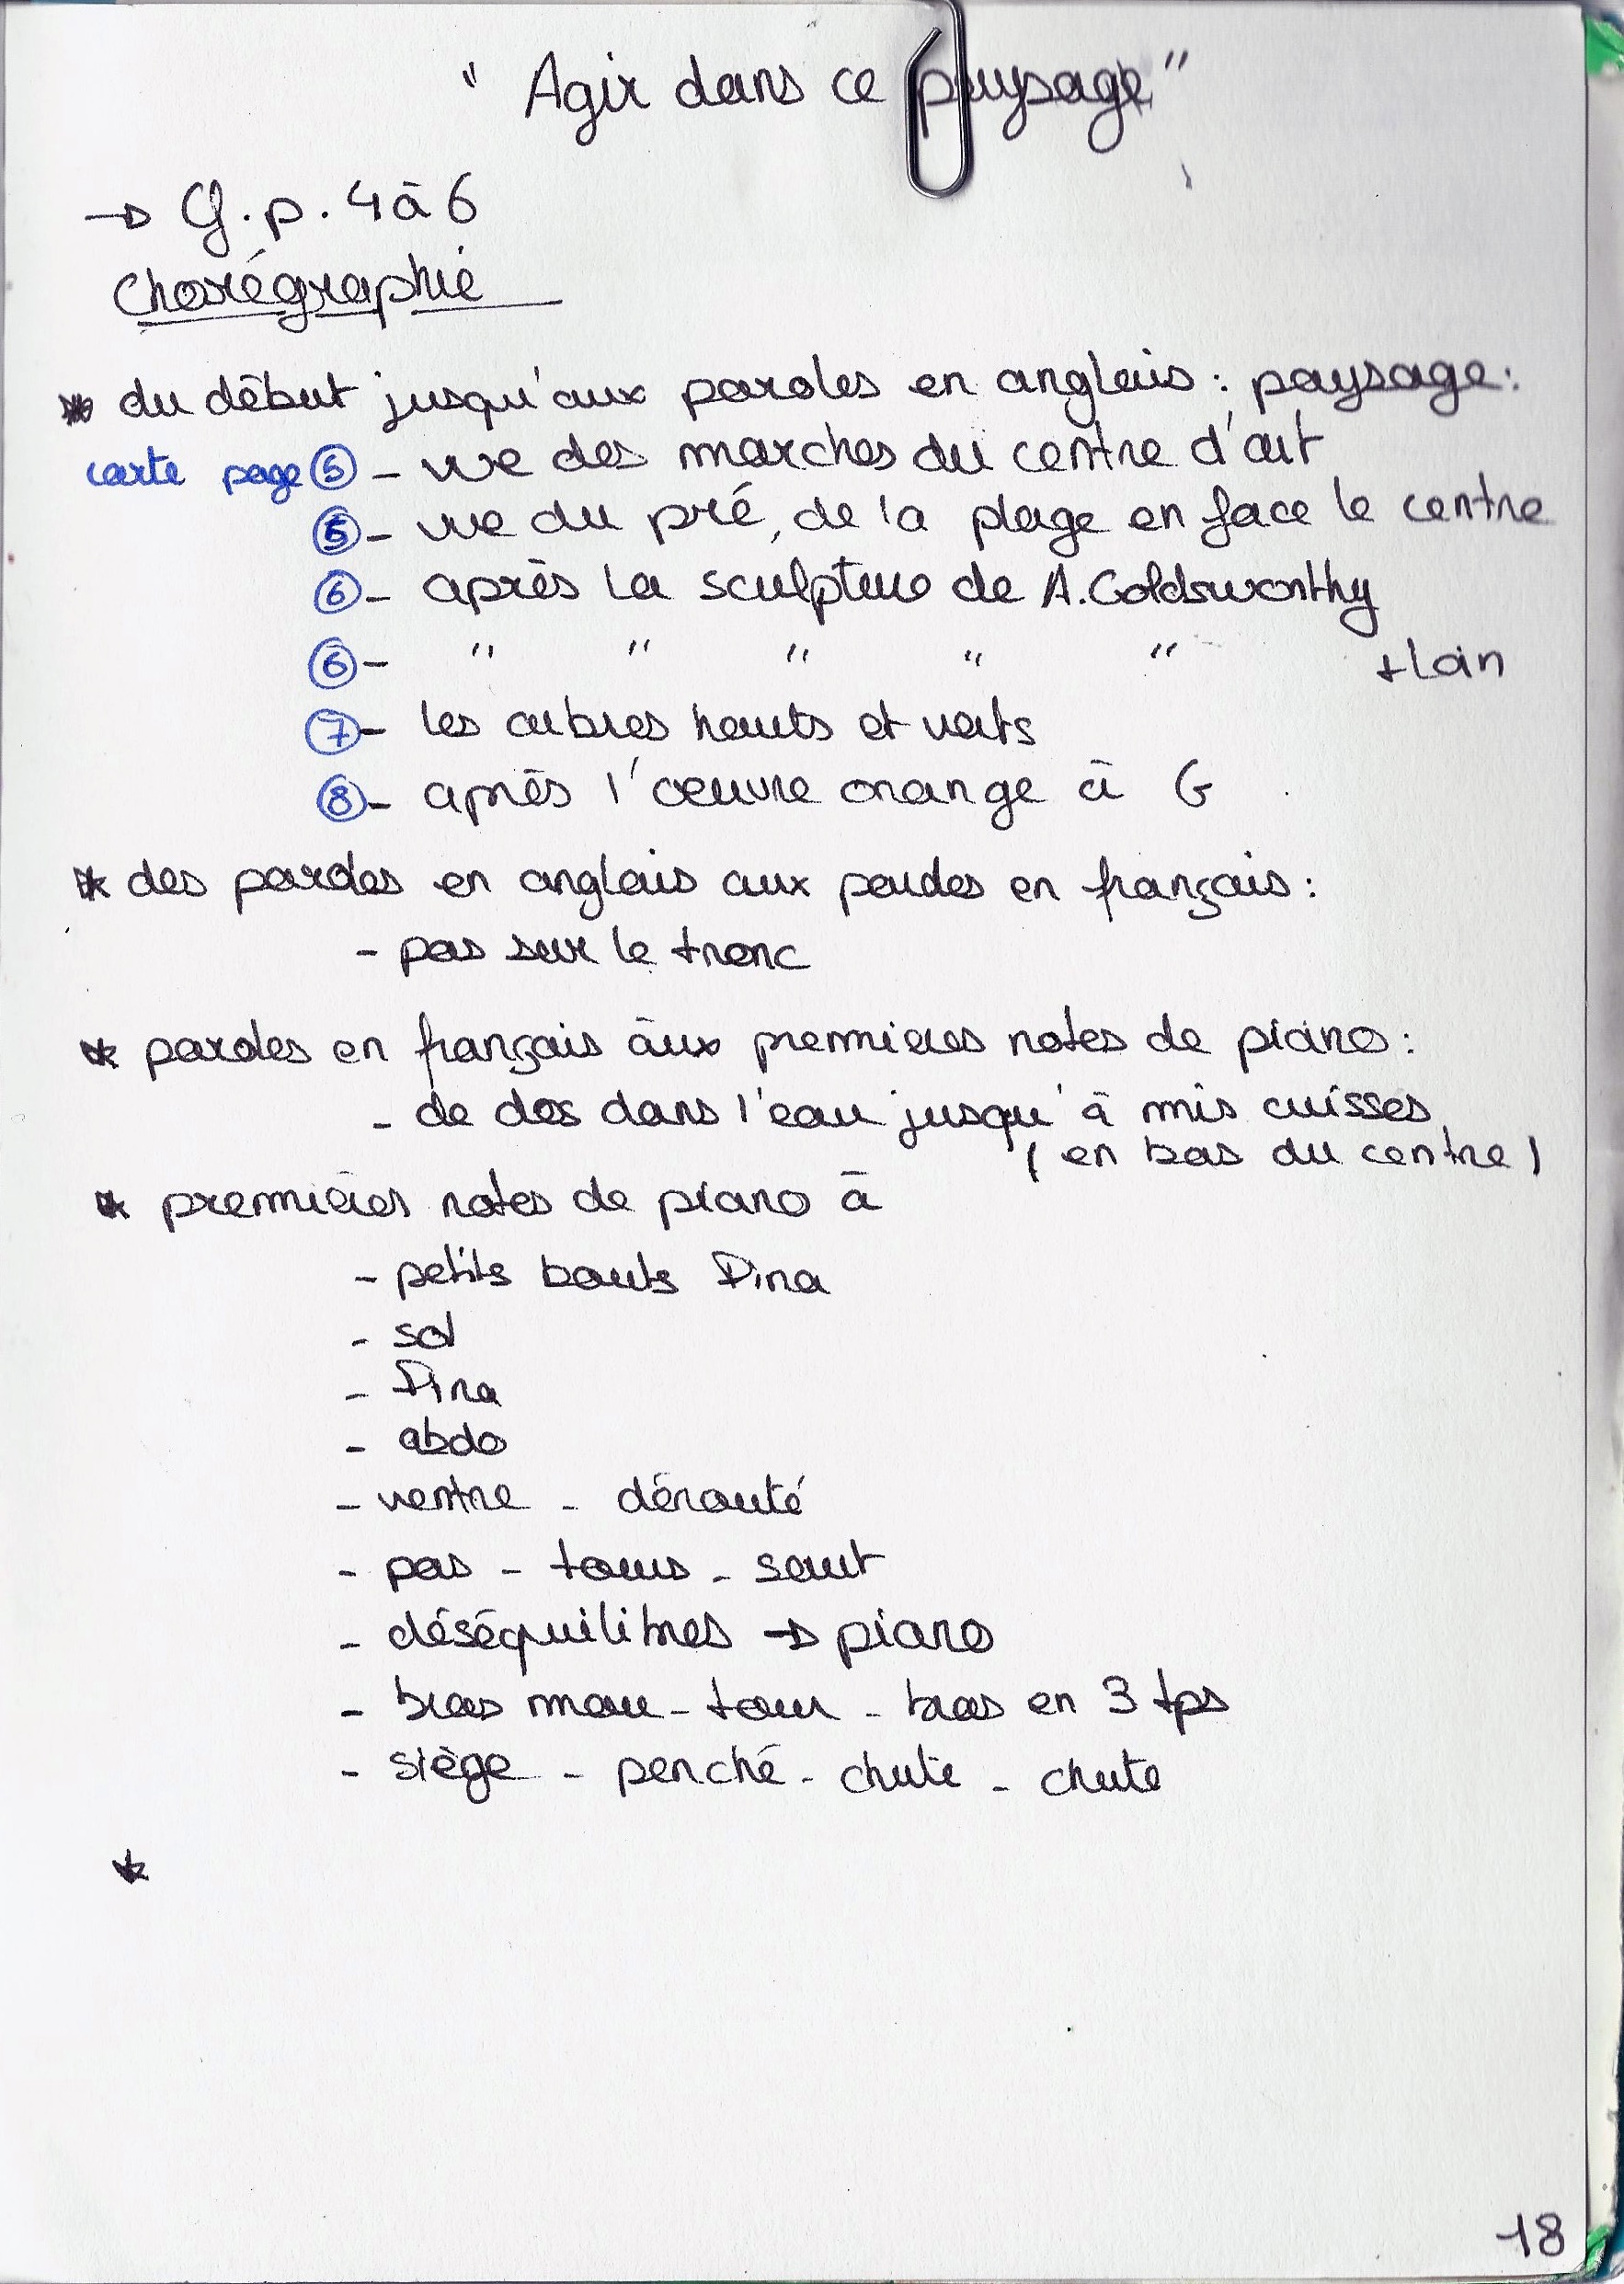 " Agir dans ce paysage"
→ Cf. p. 4 à 6
Chorégraphie
* du début jusqu'aux paroles en anglais : paysage :
carte page ⑤ - vue des marches du centre d'art
⑤ - vue du pré, de la plage en face le centre
⑥ - après la sculpture de A. Goldsworthy
⑥ - " " " " " + loin
⑦ - les arbres hauts et verts
⑧ - après l'œuvre orange à G
* des paroles en anglais aux paroles en français :
- pas sur le tronc
* paroles en français aux premières notes de piano :
- de dos dans l'eau jusqu'à mis cuisses
(en bas du centre)
* premières notes de piano à
- petits bouts Dina
- sol
- Dina
- abdo
- ventre - dérouté
- pas - tours - saut
- déséquilibres → piano
- bras mou - tour - bras en 3 tps
- siège - penché - chute - chute
*
18